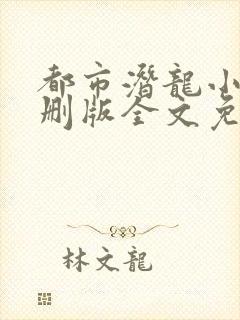 都市潛龍小
刪版全文免
林文龍